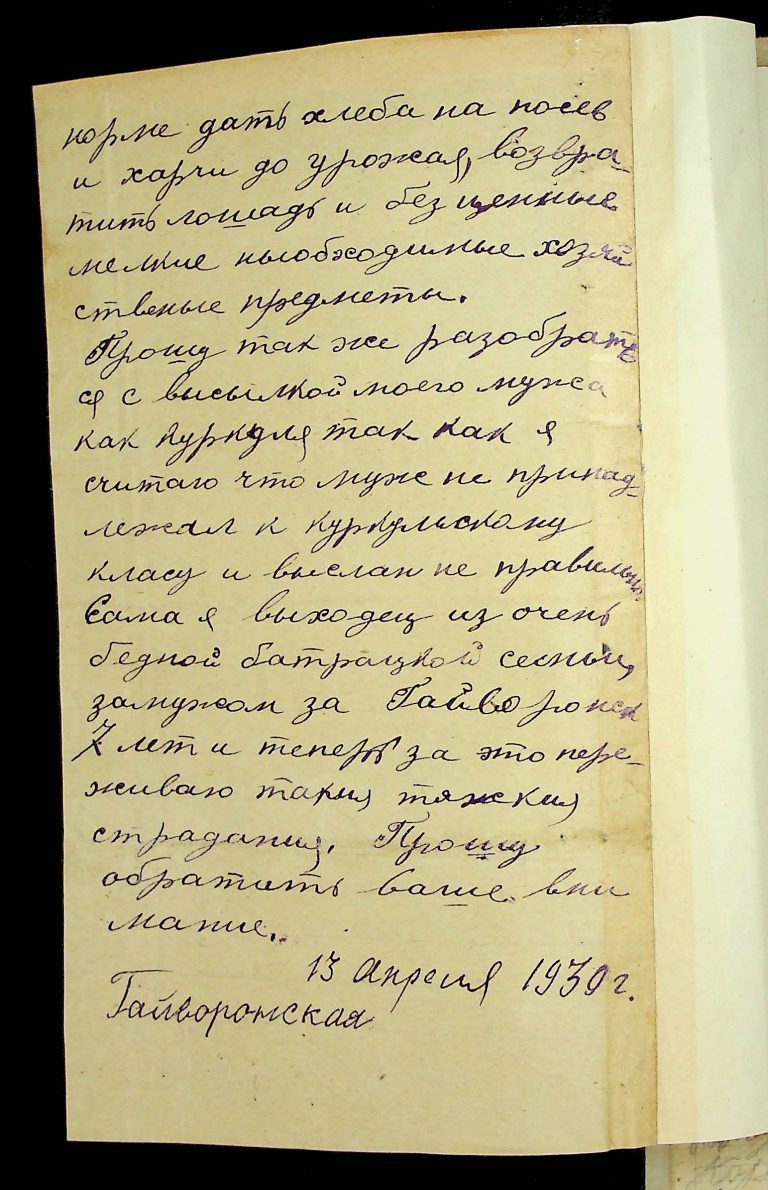 норме дать хлеба на посев
и харчи до урожая, возвра-
тить лошадь и без ценные
мелкие ньобходимые хозяй
ственые предметы.
Прошу так же разобрать
ся с высылкой моего мужа
как куркуля так как я
считаю что муж не принад-
лежал к куркульскому
класу и выслан не правильно.
Сама я выходец из очень
бедной батрацкой семьи,
замужом за Гайворонск
7 лет и теперь за это пере-
живаю такия тяжкия
страдания. Прошу
обратить ваше вни
мание.
13 апреля 1930 г.
Гайворонская